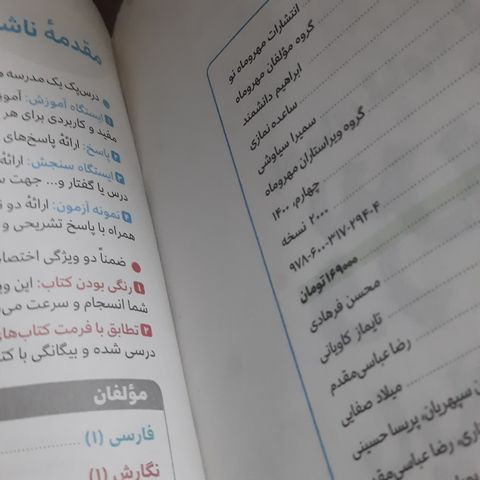 انتشارات مهروماه نو
گروه مؤلفان مهروماه
ابراهیم دانشمند
ساعده نمازی
سمیرا سیاوشی
گروه ویراستاران مهروماه
چهارم، ۱۴۰۰
۲۰۰۰ نسخه
۹۷۸-۶۰۰-۳۱۷-۲۹۴-۴
۱۶۹۰۰۰ تومان
محسن فرهادی
تایماز کاویانی
رضا عباسی‌مقدم
میلاد صفایی
سپهریان، پریسا حسینی
رضا عباسی‌مقدم
مقدمهٔ ناشر
درس‌یک یک مدرسه
۱ ایستگاه آموزش:
مفید و کاربردی برای هر
۲ پاسخ: ارائهٔ پاسخ‌های
۳ ایستگاه سنجش: ارائهٔ
درس یا گفتار و... جهت
۴ نمونه آزمون: ارائهٔ دو
همراه با پاسخ تشریحی و
ضمناً دو ویژگی اختصا
۱ رنگی بودن کتاب: این
شما انسجام و سرعت می
۲ تطابق با فرمت کتاب‌های
درسی شده و بیگانگی با
مؤلفان
فارسی (۱)
نگارش (۱)